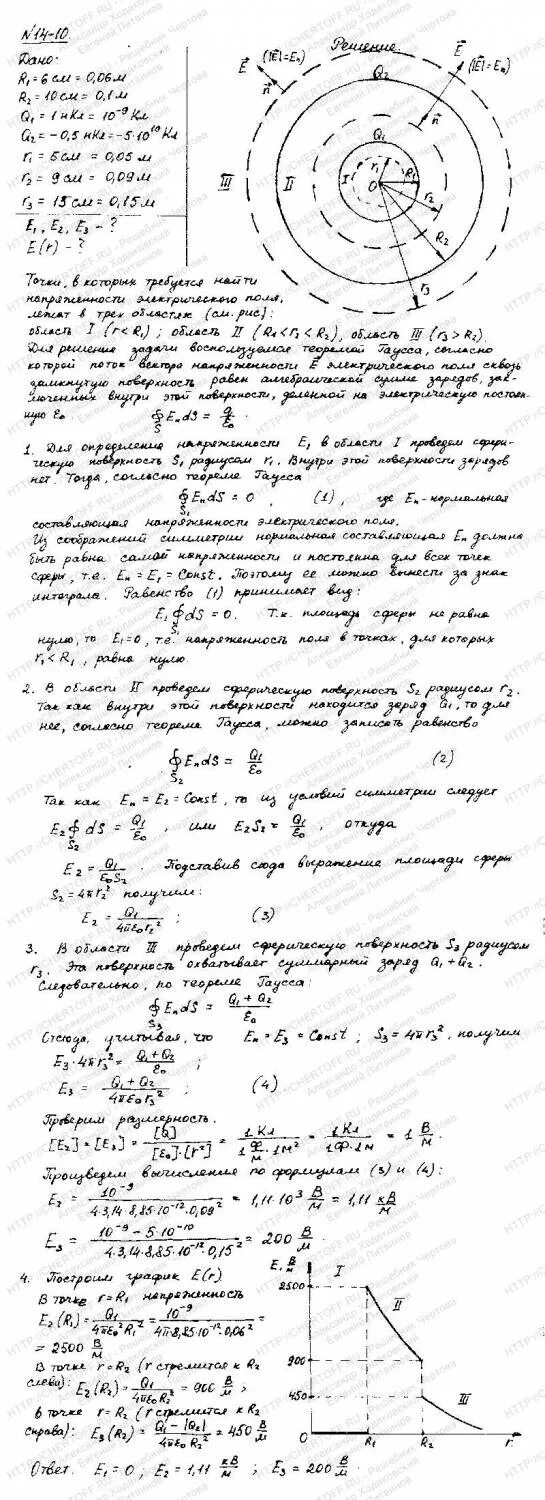 №14-10.
Дано:
R₁ = 6 см = 0,06 м
R₂ = 10 см = 0,1 м
Q₁ = 1 нКл = 10⁻⁹ Кл
Q₂ = −0,5 нКл = −5·10¹⁰ Кл
r₁ = 5 см = 0,05 м
r₂ = 9 см = 0,09 м
r₃ = 15 см = 0,15 м
E₁, E₂, E₃ – ?
E(r) – ?
Решение.
E (|E|=Eₙ)
n
E (|E|=Eₙ)
n
Q₂
Q₁
III II I r₁ R₁
O r₂
R₂
r₃
Точки, в которых требуется найти
напряженности электрического поля,
лежат в трех областях (см. рис):
область I (r < R₁) ; область II (R₁ < r₂ < R₂), область III (r₃ > R₂).
Для решения задачи воспользуемся теоремой Гаусса, согласно
которой поток вектора напряженности E электрического поля сквозь
замкнутую поверхность равен алгебраической сумме зарядов, зак-
люченных внутри этой поверхности, деленной на электрическую постоян-
ную ε₀. ∮S EₙdS = q/ε₀.
1. Для определения напряженности E₁ в области I проведем сфери-
ческую поверхность S₁ радиусом r₁. Внутри этой поверхности зарядов
нет. Тогда, согласно теореме Гаусса
∮S₁ EₙdS = 0 , (1) , где Eₙ - нормальная
составляющая напряженности электрического поля.
Из соображений симметрии нормальная составляющая Eₙ должна
быть равна самой напряженности и постоянна для всех точек
сферы, т.е. Eₙ = E₁ = Const. Поэтому ее можно вынести за знак
интеграла. Равенство (1) принимает вид:
E₁∮S₁ dS = 0. Т.к. площадь сферы не равна
нулю, то E₁=0, т.е. напряженность поля в точках, для которых
r₁ < R₁ , равна нулю.
2. В области II проведем сферическую поверхность S₂ радиусом r₂.
Так как внутри этой поверхности находится заряд Q₁, то для
нее, согласно теореме Гаусса, можно записать равенство
∮S₂ EₙdS = Q₁/ε₀ (2)
Так как Eₙ = E₂ = Const, то из условий симметрии следует
E₂∮S₂ dS = Q₁/ε₀ , или E₂S₂ = Q₁/ε₀ , откуда
E₂ = Q₁/ε₀S₂ . Подставив сюда выражение площади сферы
S₂ = 4πr₂² получим:
E₂ = Q₁/4πε₀r₂² ; (3)
3. В области III проведем сферическую поверхность S₃ радиусом
r₃. Эта поверхность охватывает суммарный заряд Q₁+Q₂.
Следовательно, по теореме Гаусса:
∮S₃ EₙdS = Q₁+Q₂/ε₀
Отсюда, учитывая, что Eₙ = E₃ = Const ; S₃ = 4πr₃², получим
E₃·4πr₃² = Q₁+Q₂/ε₀ ;
E₃ = Q₁+Q₂/4πε₀r₃² ; (4)
Проверим размерность.
[E₂]=[E₃] = [Q]/[ε₀]·[r²] = 1Кл/1Ф/м·1м² = 1Кл/1Ф·1м = 1 В/м.
Произведем вычисление по формулам (3) и (4):
E₂ = 10⁻⁹/4·3,14·8,85·10⁻¹²·0,09² = 1,11·10³ В/м = 1,11 кВ/м
E₃ = 10⁻⁹ − 5·10⁻¹⁰/4·3,14·8,85·10⁻¹²·0,15² = 200 В/м.
4. Построим график E(r)
В точке r=R₁ напряженность
E₂(R₁) = Q₁/4πε₀R₁² = 10⁻⁹/4π·8,85·10⁻¹²·0,06² =
= 2500 В/м
В точке r=R₂ (r стремится к R₂
слева): E₂(R₂) = Q₁/4πε₀R₂² = 900 В/м ;
в точке r=R₂ (r стремится к R₂
справа): E₃(R₂) = Q₁−|Q₂|/4πε₀R₂² = 450 В/м
E, В/м
I
2500
II
900
450
III
0 R₁ R₂ r
Ответ. E₁=0 ; E₂ = 1,11 кВ/м ; E₃ = 200 В/м.